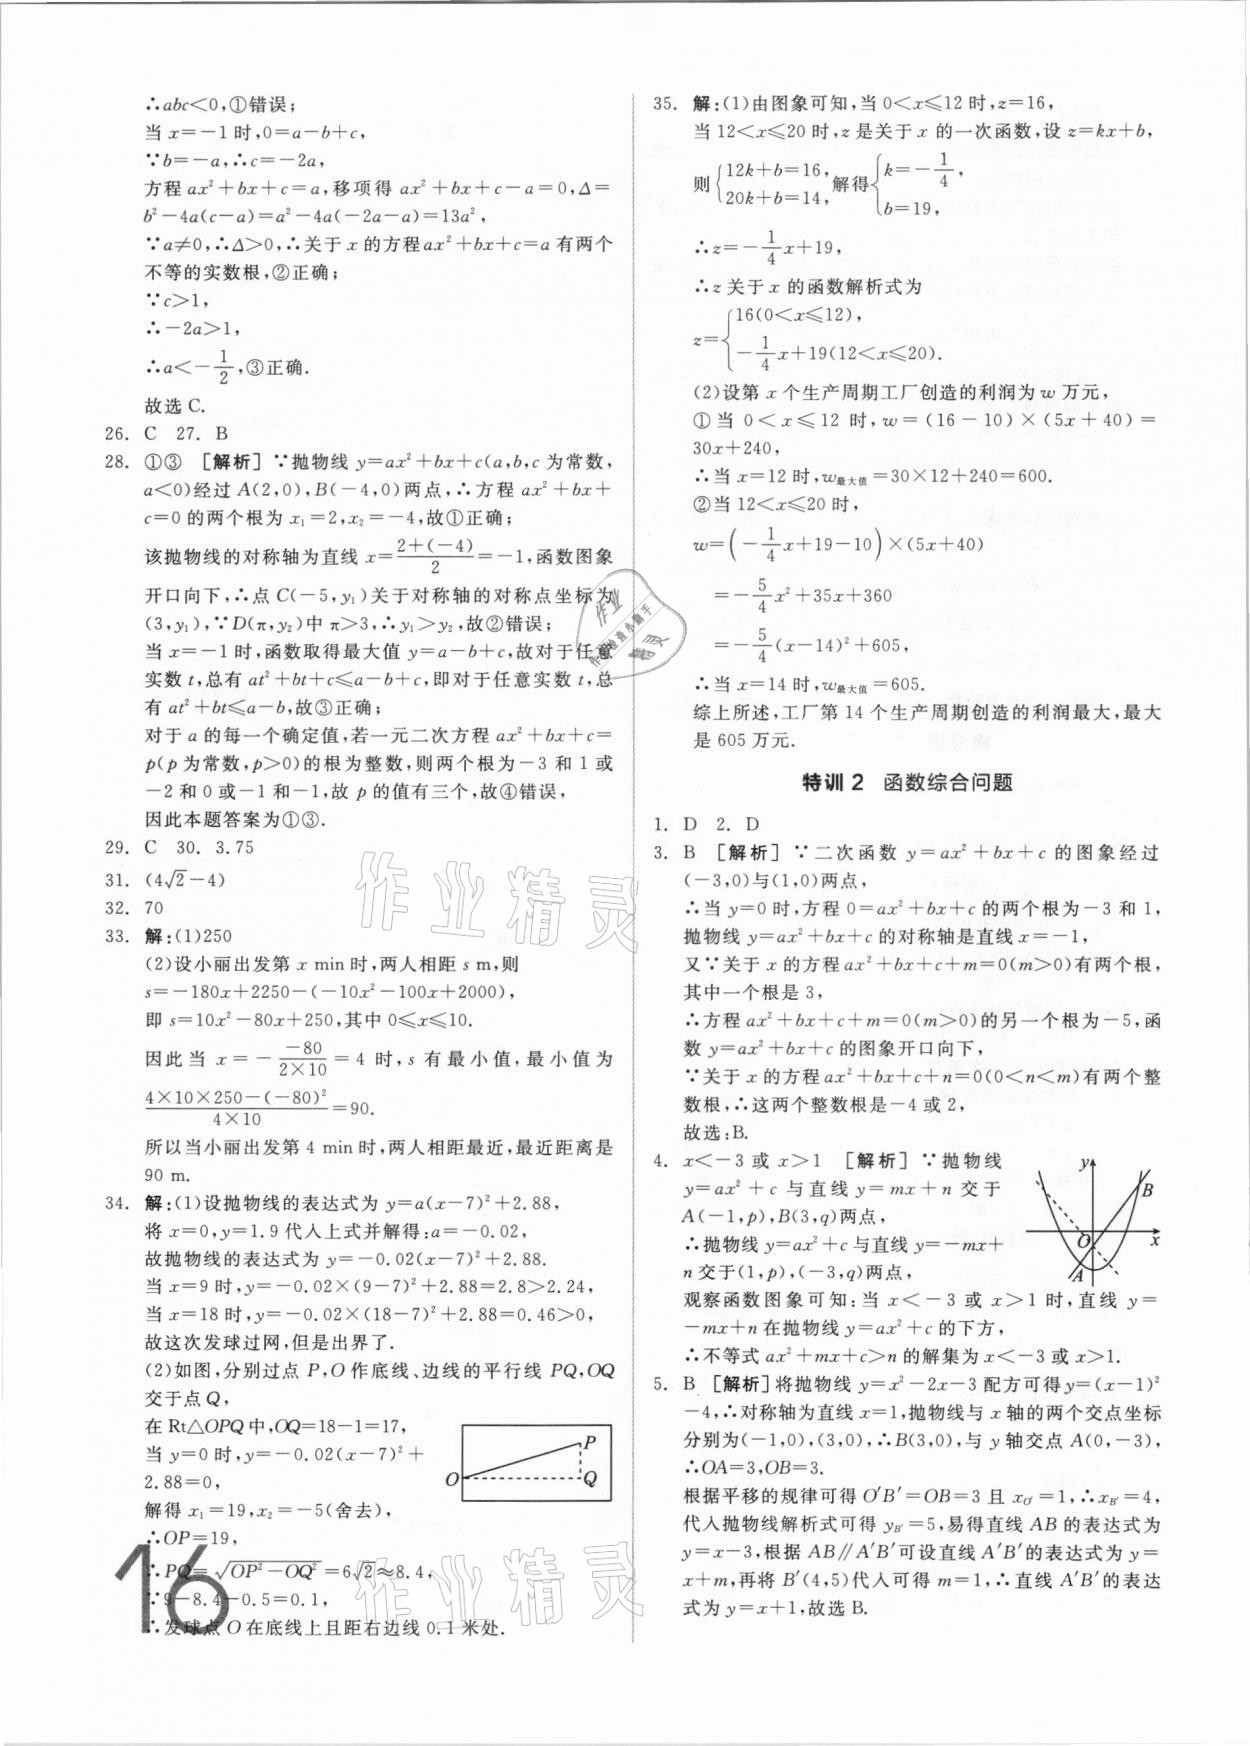 ∴abc<0,①错误;
当 x=-1 时,0=a-b+c,
∵b=-a,∴c=-2a,
方程 ax²+bx+c=a,移项得 ax²+bx+c-a=0,Δ=
b²-4a(c-a)=a²-4a(-2a-a)=13a²,
∵a≠0,∴Δ>0,∴关于 x 的方程ax²+bx+c=a 有两个
不等的实数根,②正确;
∵c>1,
∴-2a>1,
∴a<-1/2,③正确.
故选 C.
26. C 27. B
28. ①③ [解析]∵抛物线 y=ax²+bx+c(a,b,c 为常数,
a<0)经过 A(2,0),B(-4,0)两点,∴方程 ax²+bx+
c=0 的两个根为 x₁=2,x₂=-4,故①正确;
该抛物线的对称轴为直线 x=(2+(-4))/2=-1,函数图象
开口向下,∴点 C(-5,y₁)关于对称轴的对称点坐标为
(3,y₁),∵D(π,y₂)中 π>3,∴y₁>y₂,故②错误;
当 x=-1 时,函数取得最大值 y=a-b+c,故对于任意
实数 t,总有 at²+bt+c≤a-b+c,即对于任意实数 t,总
有 at²+bt≤a-b,故③正确;
对于 a 的每一个确定值,若一元二次方程 ax²+bx+c=
p(p 为常数,p>0)的根为整数,则两个根为-3 和 1 或
-2 和 0 或-1 和-1,故 p 的值有三个,故④错误,
因此本题答案为①③.
29. C 30. 3.75
31. (4√2-4)
32. 70
33. 解:(1)250
(2)设小丽出发第 x min 时,两人相距 s m,则
s=-180x+2250-(-10x²-100x+2000),
即 s=10x²-80x+250,其中 0≤x≤10.
因此当 x=-(-80)/(2×10)=4 时,s 有最小值,最小值为
(4×10×250-(-80)²)/(4×10)=90.
所以当小丽出发第 4 min 时,两人相距最近,最近距离是
90 m.
34. 解:(1)设抛物线的表达式为 y=a(x-7)²+2.88,
将 x=0,y=1.9 代入上式并解得:a=-0.02,
故抛物线的表达式为 y=-0.02(x-7)²+2.88.
当 x=9 时,y=-0.02×(9-7)²+2.88=2.8>2.24,
当 x=18 时,y=-0.02×(18-7)²+2.88=0.46>0,
故这次发球过网,但是出界了.
(2)如图,分别过点 P,O 作底线、边线的平行线 PQ,OQ
交于点 Q,
在 Rt△OPQ 中,OQ=18-1=17,
当 y=0 时,y=-0.02(x-7)²+
2.88=0,
解得 x₁=19,x₂=-5(舍去),
∴OP=19,
∴PQ=√(OP²-OQ²)=6√2≈8.4,
∵9-8.4-0.5=0.1,
∴发球点 O 在底线上且距右边线 0.1 米处.
O
P
Q
16
35. 解:(1)由图象可知,当 0<x≤12 时,z=16,
当 12<x≤20 时,z 是关于 x 的一次函数,设 z=kx+b,
则{12k+b=16, 20k+b=14,解得{k=-1/4, b=19,
∴z=-1/4x+19,
∴z 关于 x 的函数解析式为
z={16(0<x≤12), -1/4x+19(12<x≤20).
(2)设第 x 个生产周期工厂创造的利润为 w 万元,
①当 0<x≤12 时,w=(16-10)×(5x+40)=
30x+240,
∴当 x=12 时,w最大值=30×12+240=600.
②当 12<x≤20 时,
w=(-1/4x+19-10)×(5x+40)
=-5/4x²+35x+360
=-5/4(x-14)²+605,
∴当 x=14 时,w最大值=605.
综上所述,工厂第 14 个生产周期创造的利润最大,最大
是 605 万元.
特训 2 函数综合问题
1. D 2. D
3. B [解析]∵二次函数 y=ax²+bx+c 的图象经过
(-3,0)与(1,0)两点,
∴当 y=0 时,方程 0=ax²+bx+c 的两个根为-3 和 1,
抛物线 y=ax²+bx+c 的对称轴是直线 x=-1,
又∵关于 x 的方程 ax²+bx+c+m=0(m>0)有两个根,
其中一个根是 3,
∴方程 ax²+bx+c+m=0(m>0)的另一个根为-5,函
数 y=ax²+bx+c 的图象开口向下,
∵关于 x 的方程 ax²+bx+c+n=0(0<n<m)有两个整
数根,∴这两个整数根是-4 或 2,
故选:B.
4. x<-3 或 x>1 [解析]∵抛物线
y=ax²+c 与直线 y=mx+n 交于
A(-1,p),B(3,q)两点,
∴抛物线 y=ax²+c 与直线 y=-mx+
n 交于(1,p),(-3,q)两点,
y
B
O
x
A
观察函数图象可知:当 x<-3 或 x>1 时,直线 y=
-mx+n 在抛物线 y=ax²+c 的下方,
∴不等式 ax²+mx+c>n 的解集为 x<-3 或 x>1.
5. B [解析]将抛物线 y=x²-2x-3 配方可得 y=(x-1)²
-4,∴对称轴为直线 x=1,抛物线与 x 轴的两个交点坐标
分别为(-1,0),(3,0),∴B(3,0),与 y 轴交点 A(0,-3),
∴OA=3,OB=3.
根据平移的规律可得 O′B′=OB=3 且 xO′=1,∴xB′=4,
代入抛物线解析式可得 yB′=5,易得直线 AB 的表达式为
y=x-3,根据 AB∥A′B′可设直线 A′B′的表达式为 y=
x+m,再将 B′(4,5)代入可得 m=1,∴直线 A′B′的表达
式为 y=x+1,故选 B.
作业精灵
作业精灵